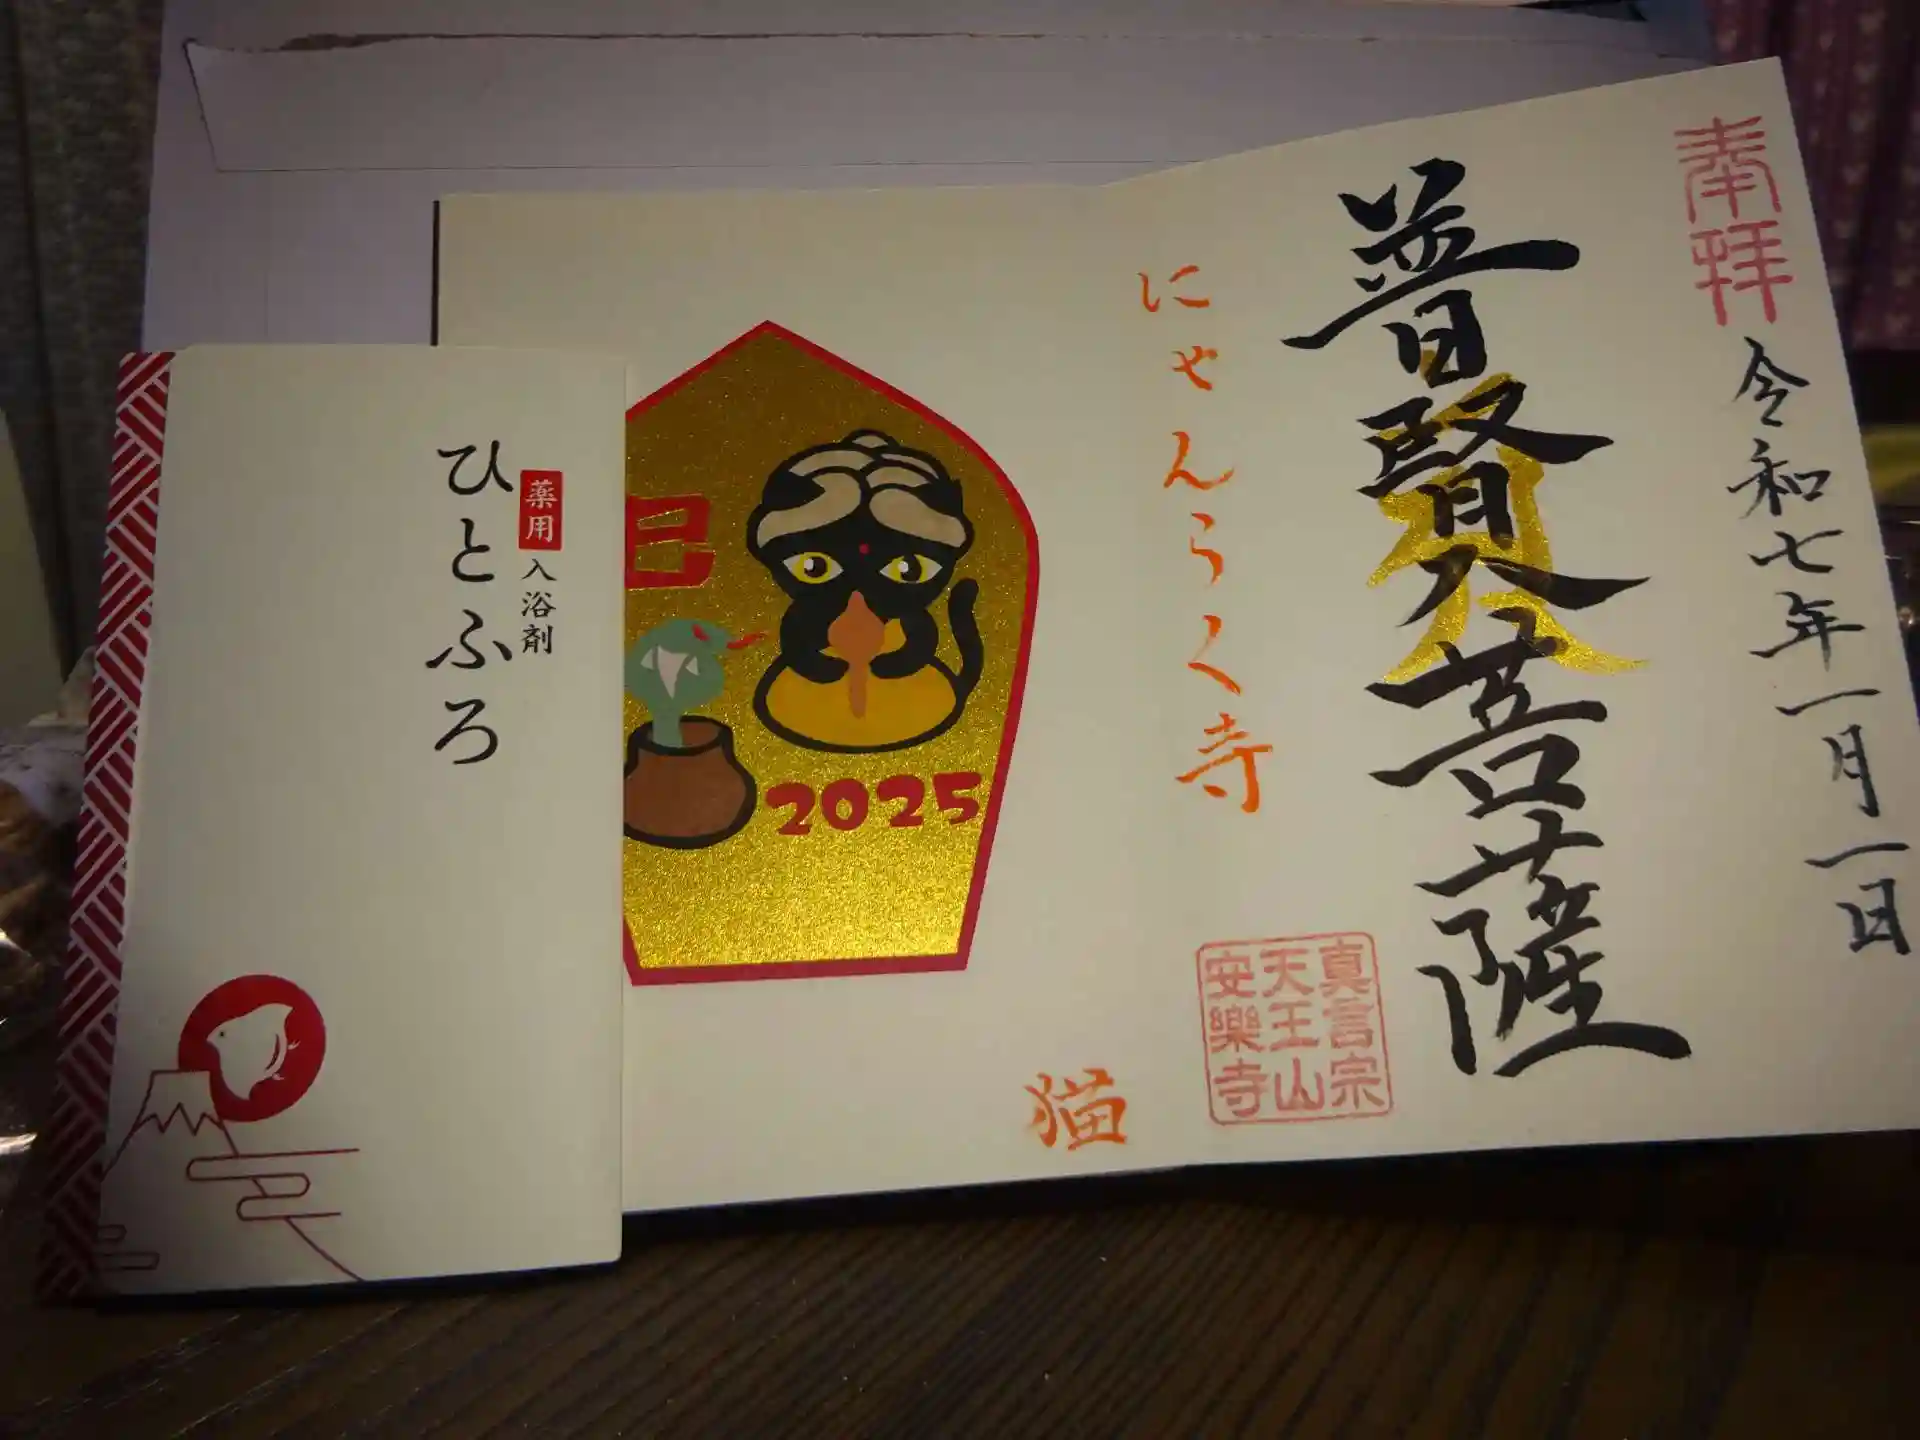 奉拝
令和七年一月一日
普賢菩薩
真言宗
天王山
安樂寺
にゃんらく寺
猫
巳
2025
薬用入浴剤
ひとふろ